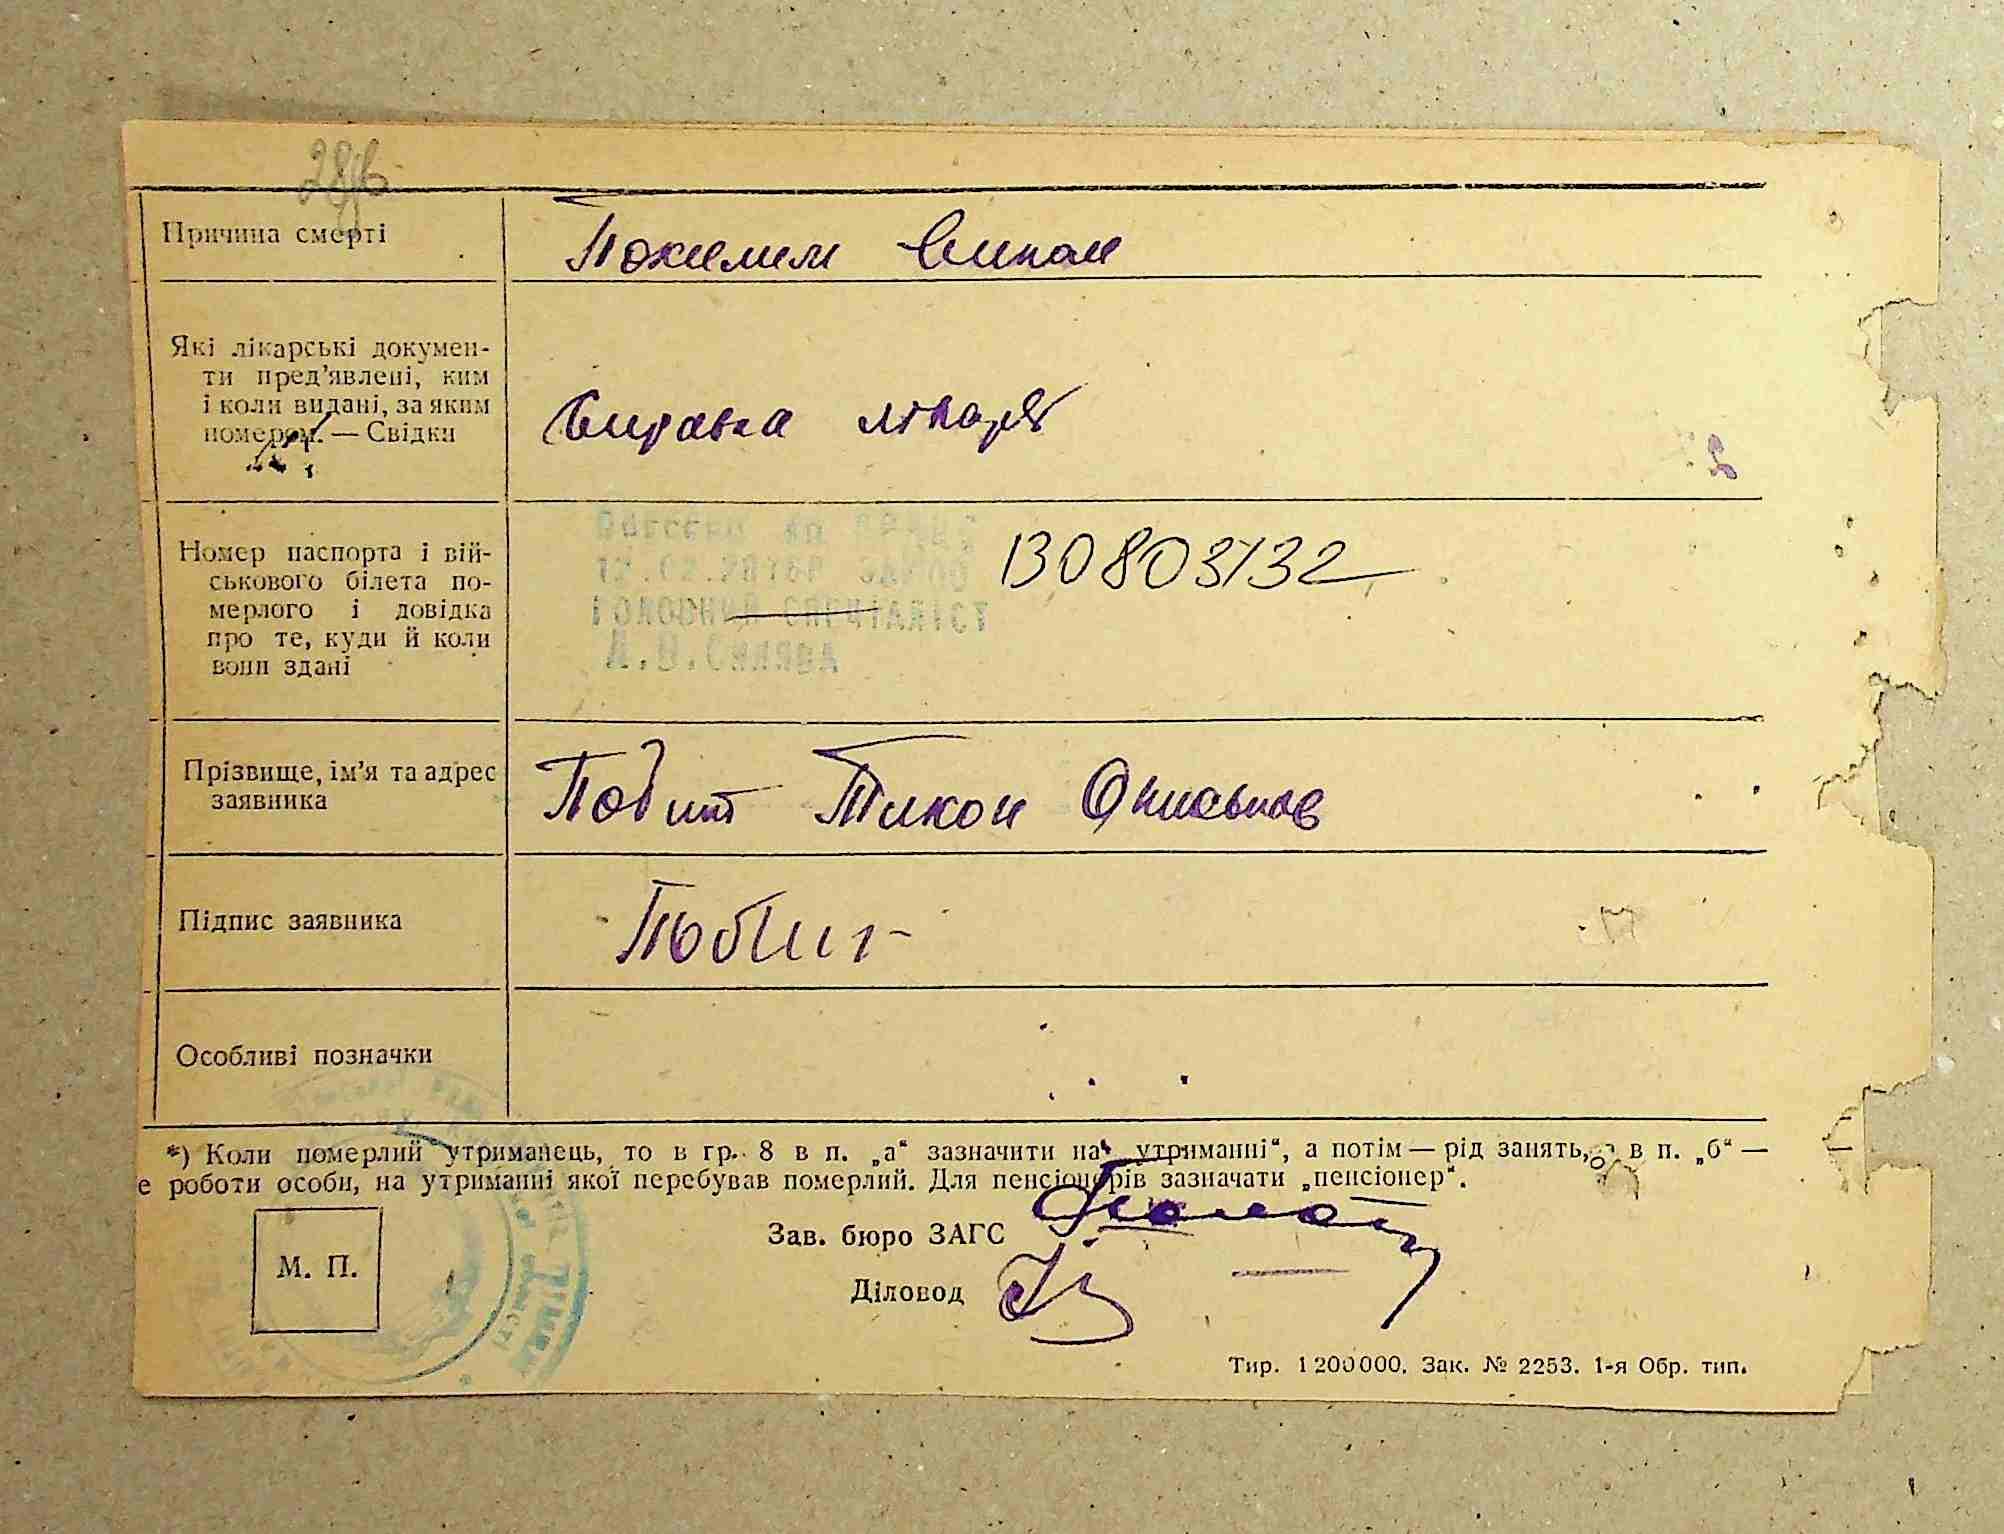 28/6
Причина смерті
Похилий
Які лікарські докумен-
ти пред'явлені, ким
і коли видані, за яким
помером. — Свідки
Справка лікаря
Номер паспорта і вій-
ськового білета по-
мерлого і довідка
про те, куди й коли
вони здані
12.02.2016Р
ГОЛОВНИЙ СПЕЦІАЛІСТ
130803132
Прізвище, ім'я та адрес
заявника
Побит Тихон
Підпис заявника
Особливі позначки
*) Коли померлий утриманець, то в гр. 8 в п. „а“ зазначити на утриманні“, а потім — рід занять, в п. „б“ —
е роботи особи, на утриманні якої перебував померлий. Для пенсіонерів зазначати „пенсіонер“.
М. П.
Зав. бюро ЗАГС
Діловод
Тир. 1 200 000. Зак. № 2253. 1-я Обр. тип.